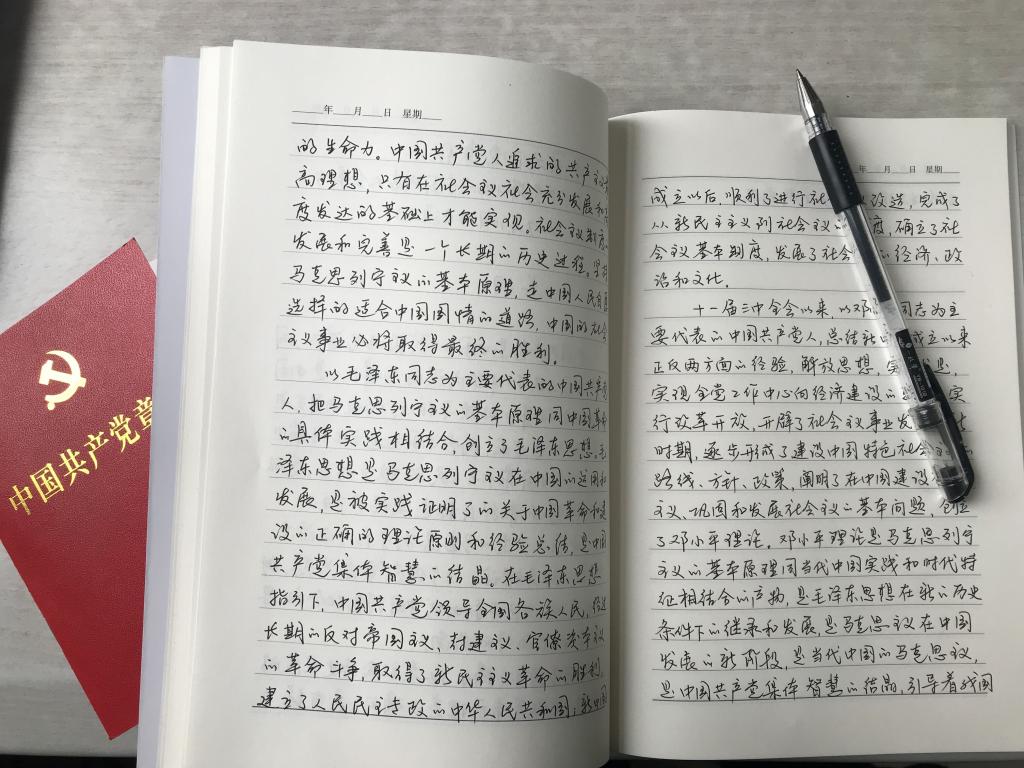 中国共产党章
年 月 日 星期
的生命力。中国共产党人追求的共产主义
高理想，只有在社会主义社会充分发展和
度发达的基础上才能实现。社会主义制度
发展和完善是一个长期的历史过程。坚持
马克思列宁主义的基本原理，走中国人民自愿
选择的适合中国国情的道路，中国的社会
主义事业必将取得最终的胜利。
以毛泽东同志为主要代表的中国共产党
人，把马克思列宁主义的基本原理同中国革命
的具体实践相结合，创立了毛泽东思想。毛
泽东思想是马克思列宁主义在中国的运用和
发展，是被实践证明了的关于中国革命和建
设的正确的理论原则和经验总结，是中国
共产党集体智慧的结晶。在毛泽东思想
指引下，中国共产党领导全国各族人民，经过
长期的反对帝国主义、封建主义、官僚资本主义
的革命斗争，取得了新民主主义革命的胜利，
建立了人民民主专政的中华人民共和国；新中国
年 月 日 星期
成立以后，顺利了进行社 改造，完成了
从新民主主义到社会主义的 度，确立了社
会主义基本制度，发展了社会 的经济、政
治和文化。
十一届三中全会以来，以邓 同志为主
要代表的中国共产党人，总结新 成立以来
正反两方面的经验，解放思想，实
实现全党工作中心向经济建设的 实
行改革开放，开辟了社会主义事业发
时期，逐步形成了建设中国特色社会
路线、方针、政策，阐明了在中国建设
主义、巩固和发展社会主义的基本问题，创立
了邓小平理论。邓小平理论是马克思列宁
主义的基本原理同当代中国实践和时代特
征相结合的产物，是毛泽东思想在新的历史
条件下的继承和发展，是马克思主义在中国
发展的新阶段，是当代中国的马克思主义，
是中国共产党集体智慧的结晶，引导着我国